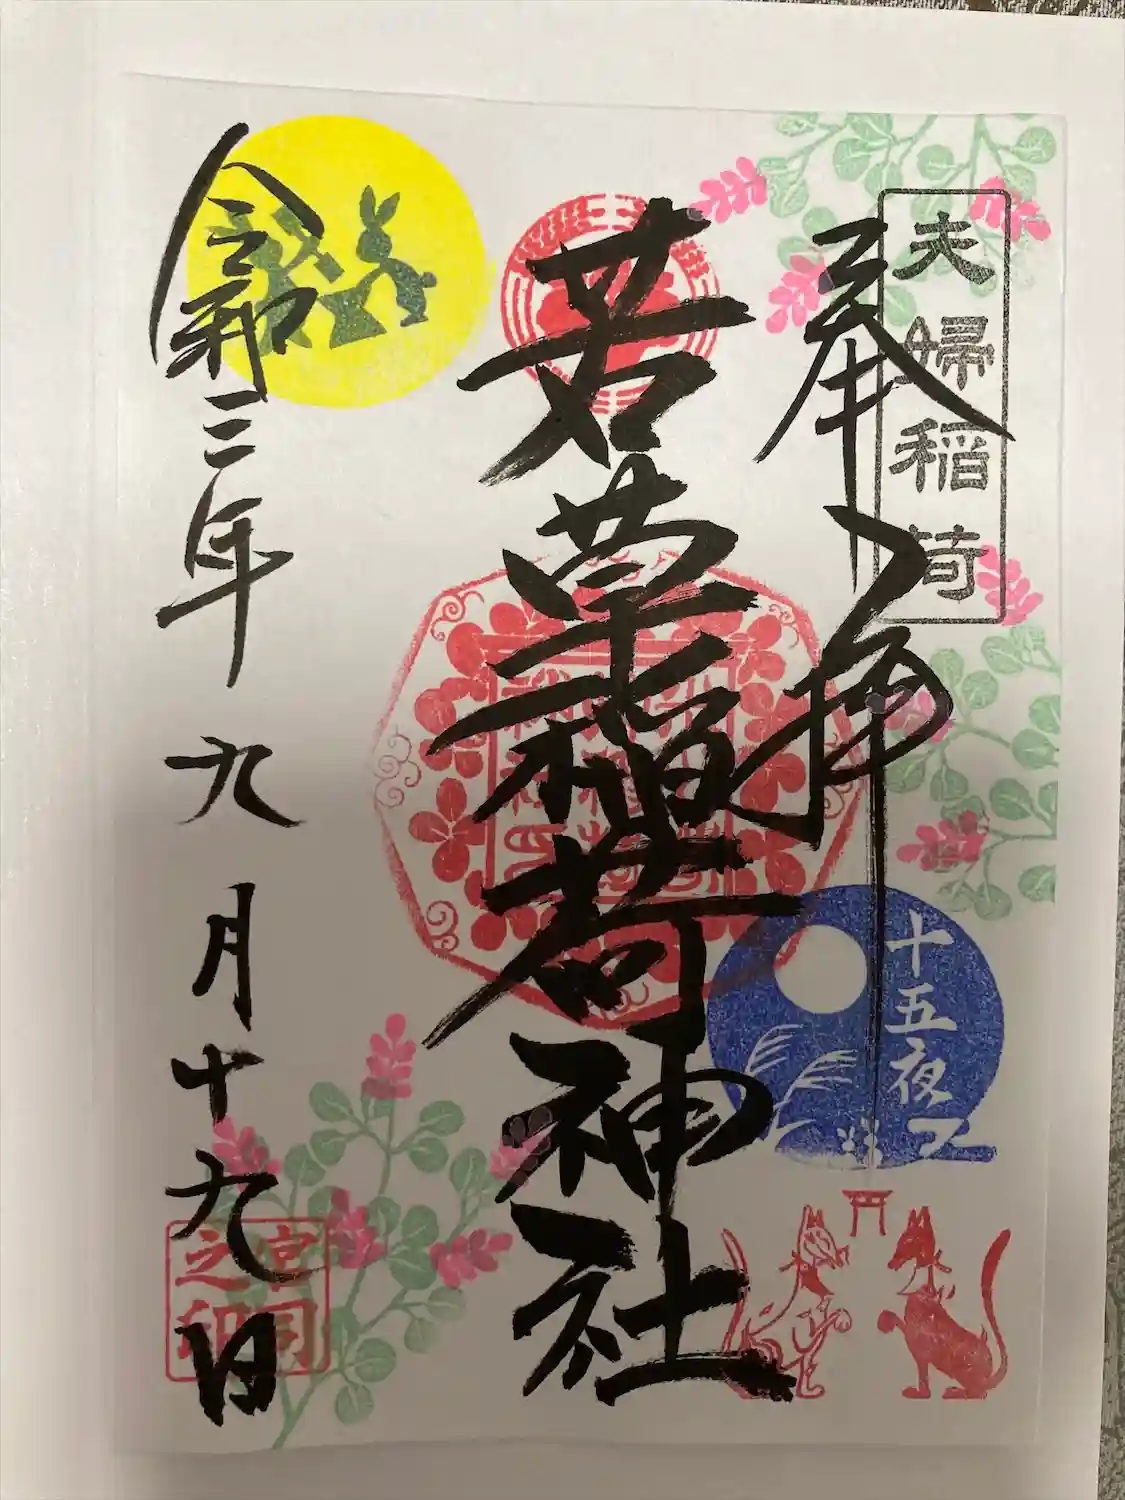 夫婦稲荷
奉拝
十五夜
若草稲荷神社
令和三年九月十九日
宮司之印